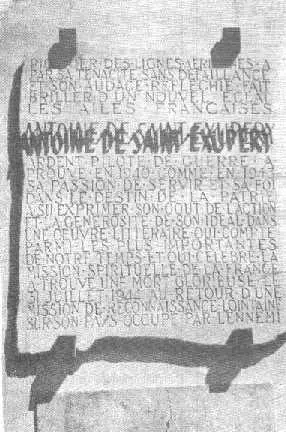 PIONNIER·DES·LIGNES·AERIENNES·A
PAR·SA·TENACITE·SANS·DEFAILLANCE
ET·SON·AUDACE·REFLECHIE·FAIT
BRILLER·D'UN·NOUVEL·ECLAT
LES·AILES·FRANÇAISES
ANTOINE·DE·SAINT·EXUPERY
ARDENT·PILOTE·DE·GUERRE·A
PROUVE·EN·1940·COMME·EN·1943
SA·PASSION·DE·SERVIR·ET·SA·FOI
DANS·LE·DESTIN·DE·LA·PATRIE
A·SU·EXPRIMER·SON·GOUT·DE·L'ACTION
ET·LA·GENEROSITE·DE·SON·IDEAL·DANS
UNE·ŒUVRE·LITTERAIRE·QUI·COMPTE
PARMI·LES·PLUS·IMPORTANTES
DE·NOTRE·TEMPS·ET·QUI·CELEBRE·LA
MISSION·SPIRITUELLE·DE·LA·FRANCE
A·TROUVE·UNE·MORT·GLORIEUSE·LE
31·JUILLET·1944·AU·RETOUR·D'UNE
MISSION·DE·RECONNAISSANCE·LOINTAINE
SUR·SON·PAYS·OCCUPE·PAR·L'ENNEMI